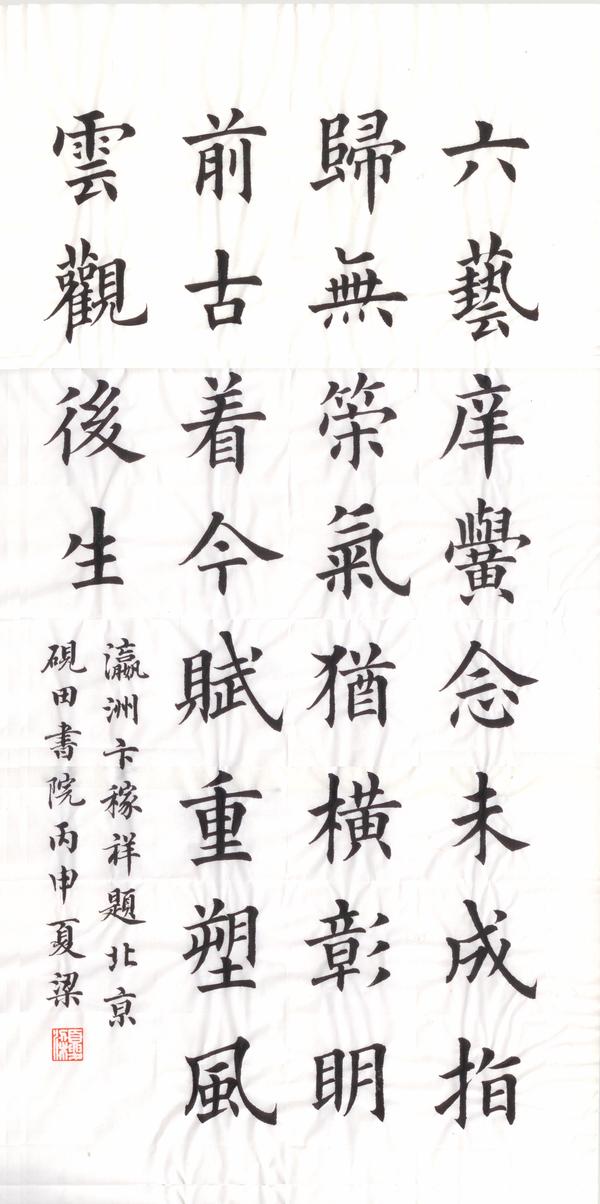 六藝庠黌念未成指
歸無策氣猶橫彰明
前古着今賦重塑風
雲觀後生
瀛洲卞稼祥題北京
硯田書院丙申夏梁